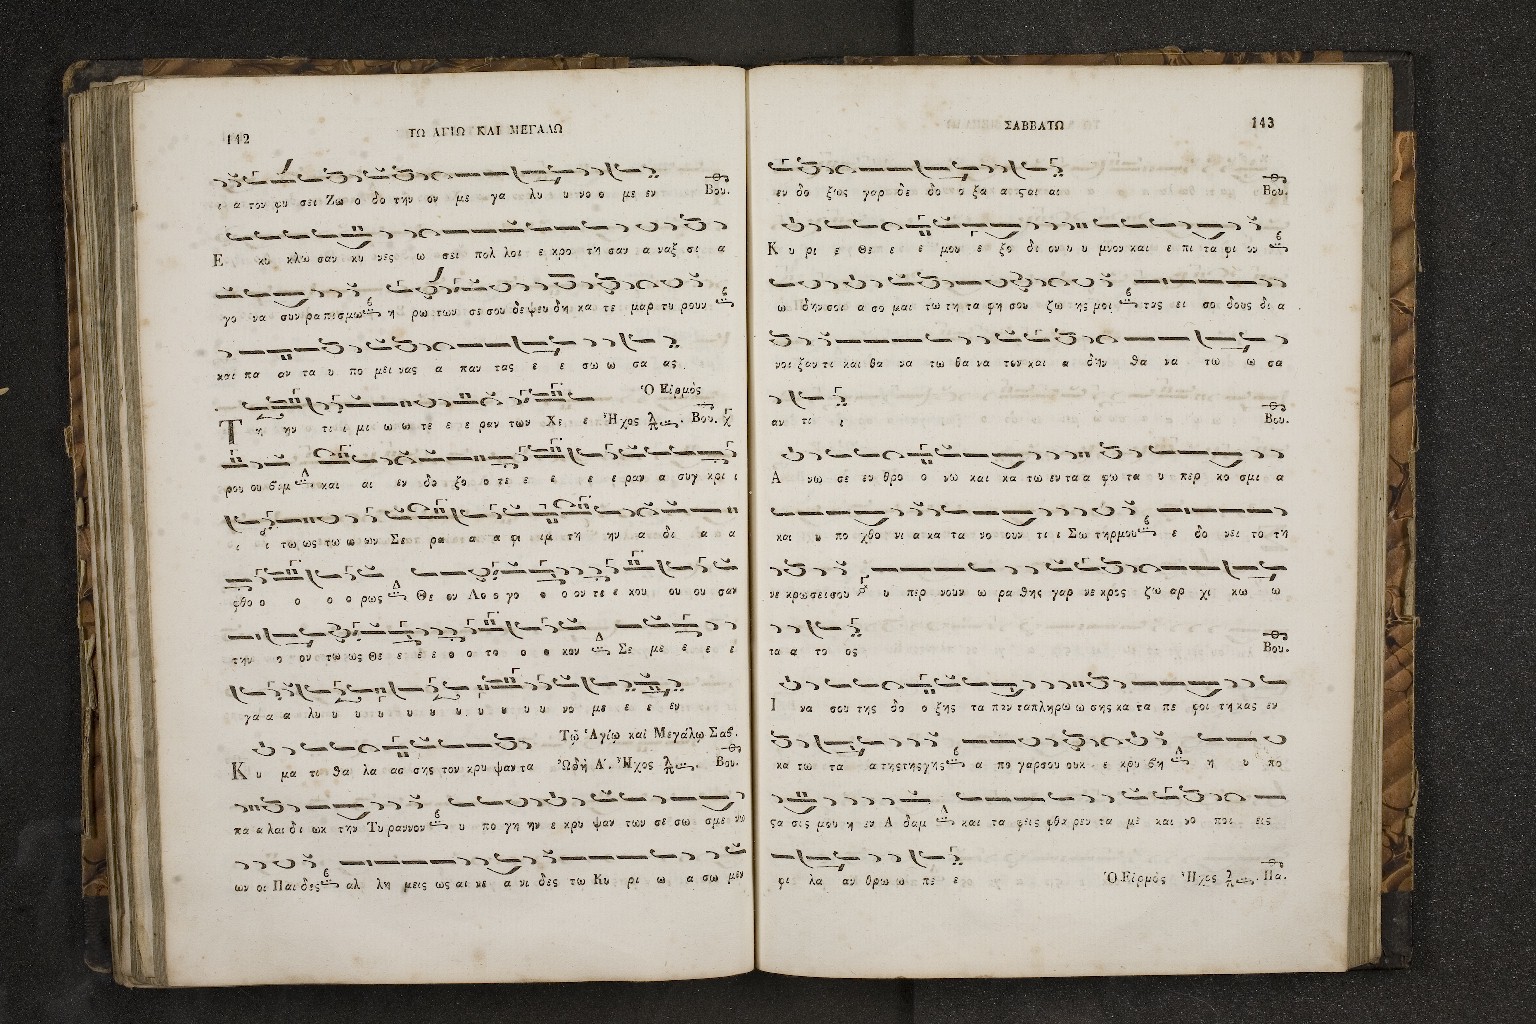 142
ΤΩ ΑΓΙΩ ΚΑΙ ΜΕΓΑΛΩ
ι α τον φυ σει Ζω ο δο την ον με γα λυ υ νο ο με εν Βου.
Ε κυ κλω σαν κυ νες ω σει πολ λοι ε κρο τη σαν α ναξ σι α
γο να συν ραπισμω η ρω των σε σου δε ψευ δη κα τε μαρ τυ ρουν
και πα αν τα υ πο μει νας α παν τας ε ε σω ω σα ας
Ὁ Εἱρμὸς
Τ η ην τι ι μι ω ω τε ε ε ραν των Χε ε Ἦχος Βου.
ρου ου βιμ και αι εν δο ξο ο τε ε ε ε ε ραν α συγ κρι ι
ι ι τω ως τω ω ων Σε ρα α α φι ιμ τη ην α δι α α
φθο ο ο ο ο ρως Θε ον Λο ο γο ο ο ον τε ε κου ου ου σαν
την ο ον τω ως Θε ε ε ε ο ο το ο ο κον Σε με ε ε ε
γα α α λυ υ υ υ υ υ υ υ υ υ νο με ε ε εν
Τῷ Ἁγίῳ καὶ Μεγάλῳ Σαβ.
Κ υ μα τι θα λα ασ σης τον κρυ ψαν τα ᾨδὴ Α΄. Ἦχος Βου.
πα α λαι δι ωκ την Τυ ραννον υ πο γη ην ε κρυ ψαν των σε σω σμε νω
ων οι Παι δες αλ λη μεις ως αι νε α νι δες τω Κυ ρι ω α σω μεν
ΣΑΒΒΑΤΩ
143
εν δο ξως γαρ δε δο ο ξα α ςαι αι Βου.
Κ υ ρι ε Θε ε ε μου ε ξο δι ον υ υ μνον και ε πι τα φι ον
ω δην σοι α σο μαι τω τη τα φη σου ζω ης μοι τας ει σο δους δι α
νοι ξαν τι και θα να τω θα να τον και α δην θα να τω ω σα
αν τι ι Βου.
Α νω σε εν θρο ο νω και κα τω εν τα α φω τα υ περ κο σμι α
και υ πο χθο νι α κα τα νο ουν τι ι Σω τηρ μου ε δο νει το τη
νε κρωσει σου υ περ νουν ω ρα θης γαρ νε κρος ζω αρ χι κω ω
τα α το ος Βου.
Ι να σου της δο ο ξης τα παν τα πληρω ω σης κα τα πε φοι τη κας εν
κα τω τα α της της γης α πο γαρ σου ουκ ε κρυ βη η υ πο
ςα σις μου η εν Α δαμ και τα φεις φθα ρεν τα με και νο ποι εις
φι λα αν θρω ω πε ε Ὁ Εἱρμὸς Ἦχος Πα.